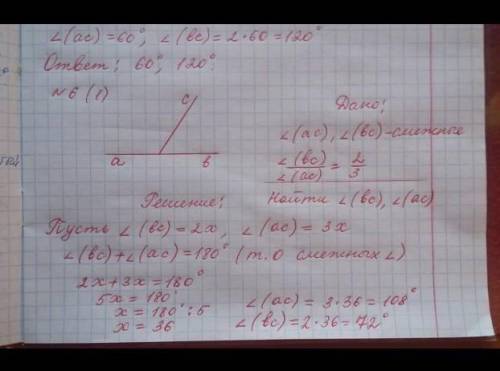 ∠(ac)=60°, ∠(bc)=2·60=120°
Ответ: 60°, 120°.
№6(1)
c
a b
Дано:
∠(ac), ∠(bc)-смежные
∠(bc)/∠(ac) = 2/3
Найти ∠(bc), ∠(ac)
Решение:
Пусть ∠(bc)=2x, ∠(ac)=3x
∠(bc)+∠(ac)=180° (т.о смежных ∠)
2x+3x=180°
5x=180°
x=180°:5
x=36
∠(ac)=3·36=108°
∠(bc)=2·36=72°